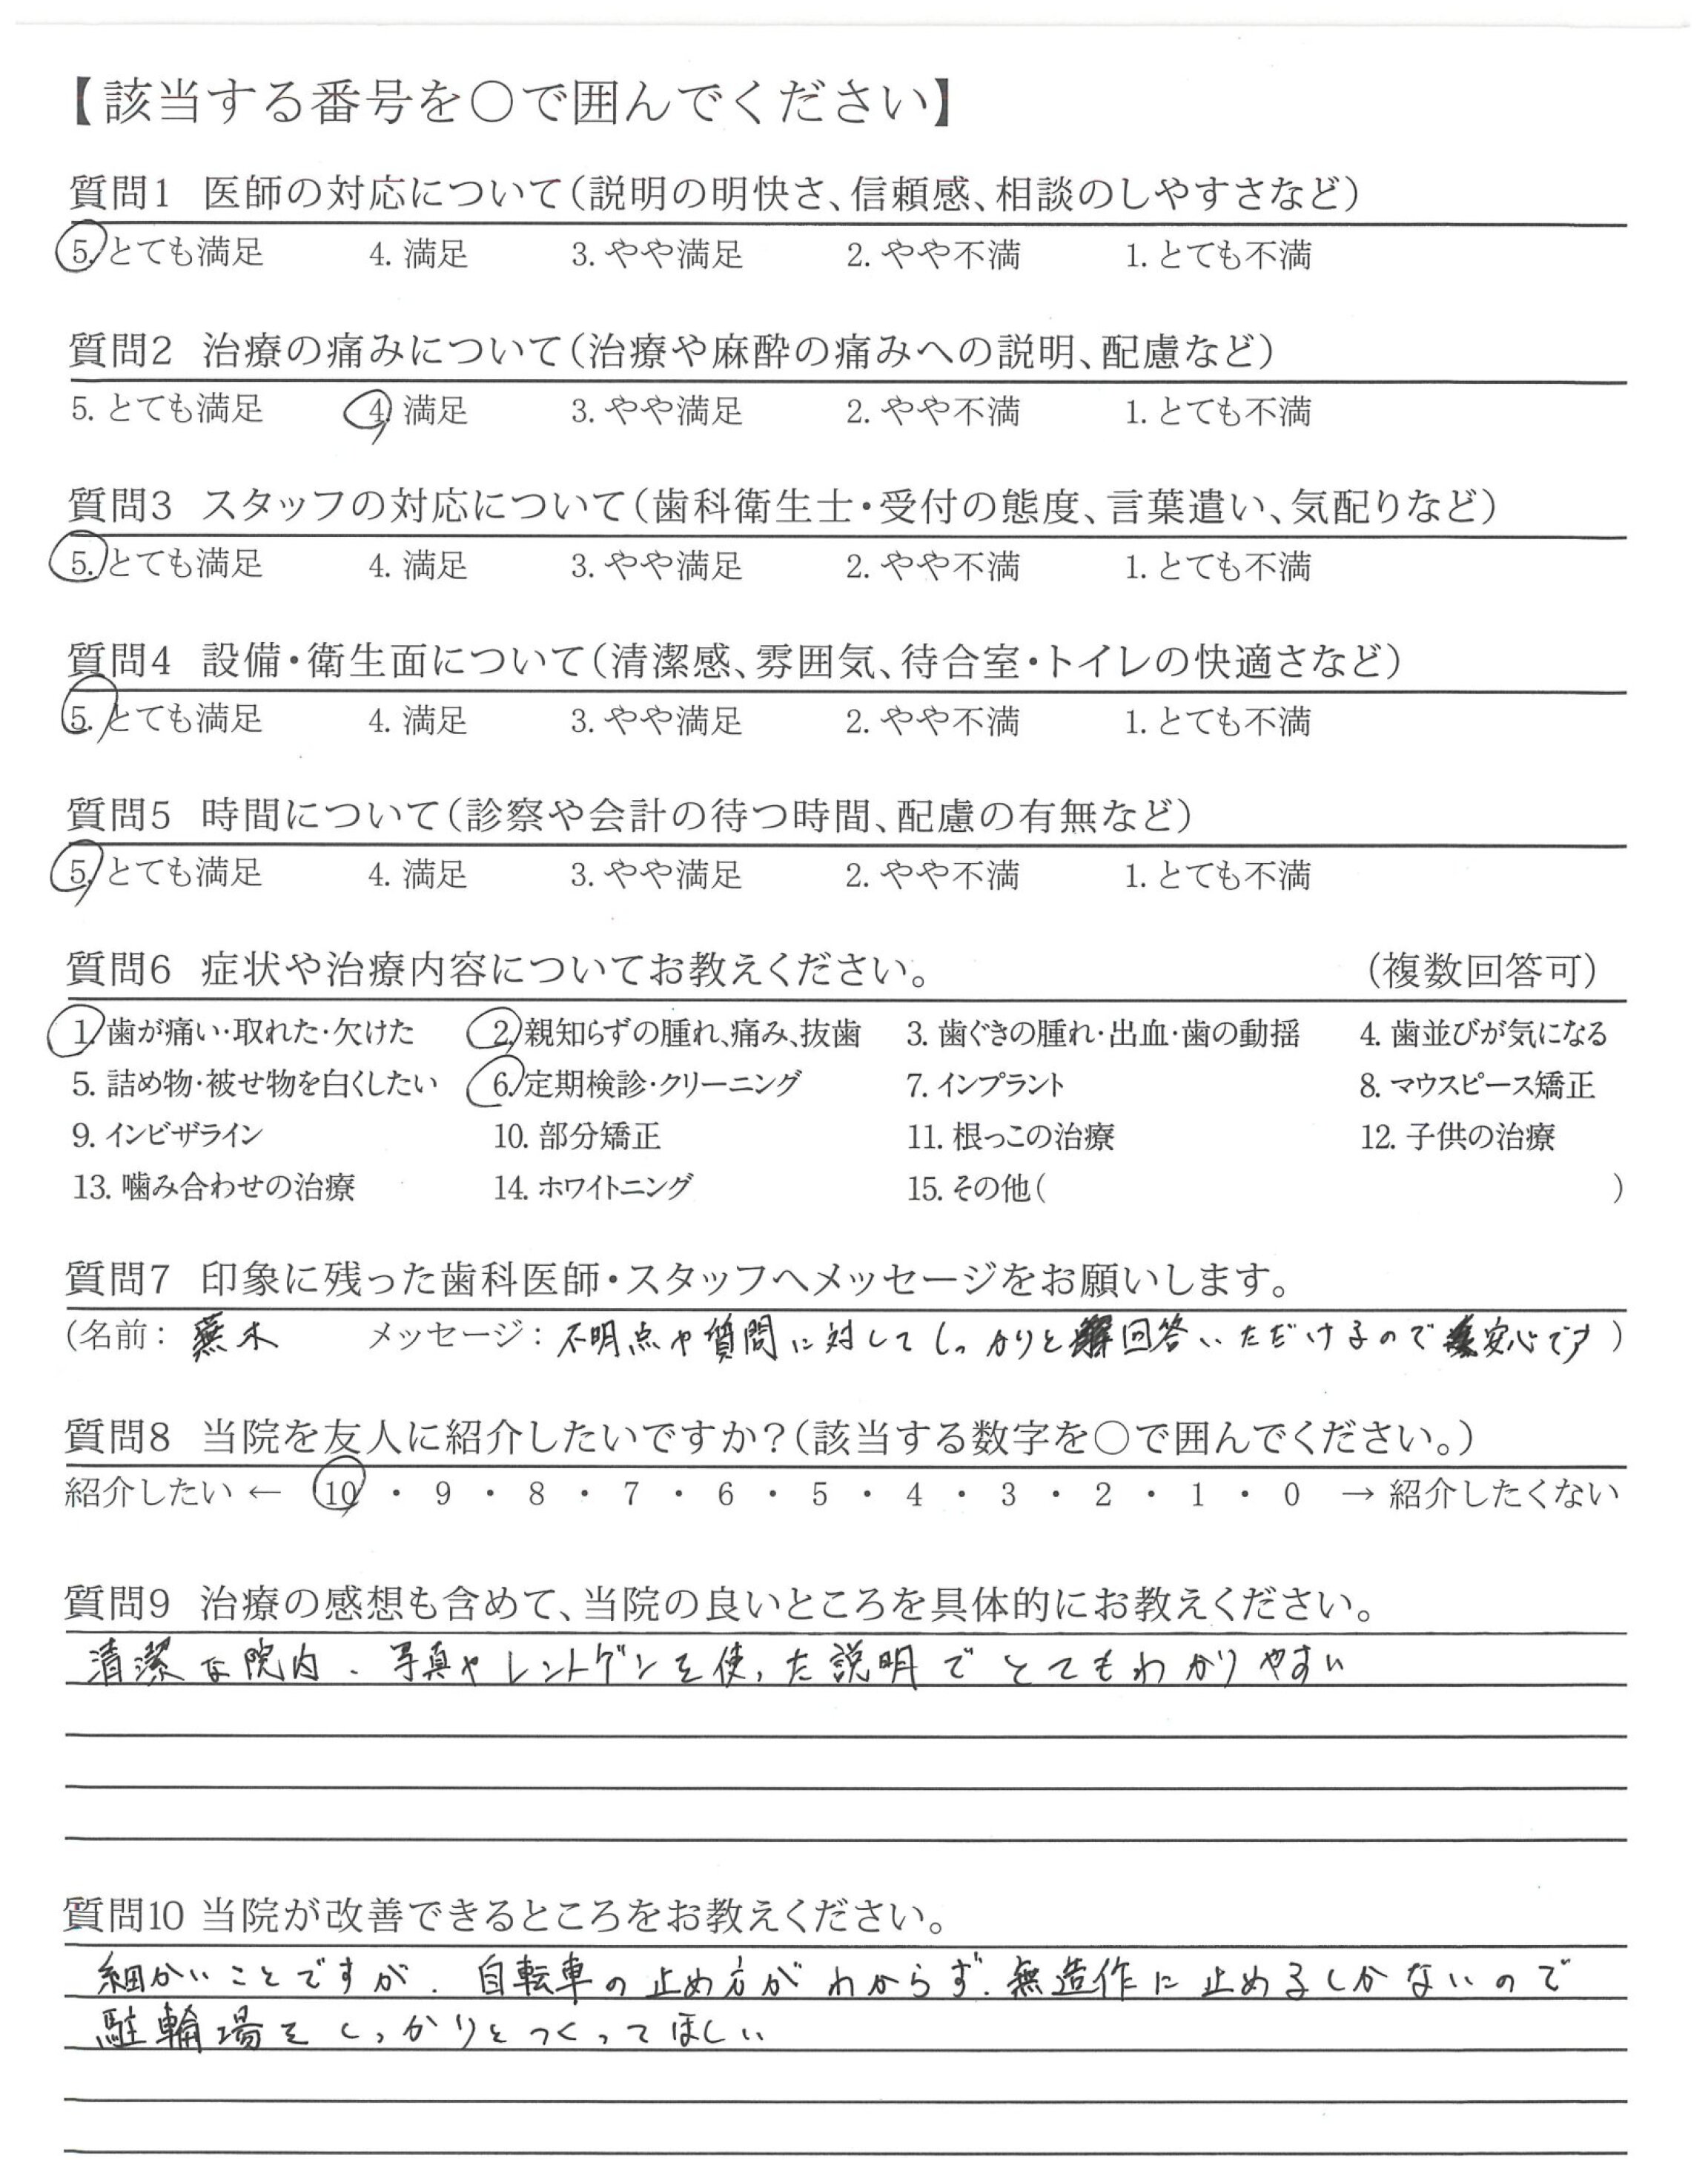 【該当する番号を〇で囲んでください】
質問1 医師の対応について(説明の明快さ、信頼感、相談のしやすさなど)
5. とても満足 4. 満足 3. やや満足 2. やや不満 1. とても不満
質問2 治療の痛みについて(治療や麻酔の痛みへの説明、配慮など)
5. とても満足 4. 満足 3. やや満足 2. やや不満 1. とても不満
質問3 スタッフの対応について(歯科衛生士・受付の態度、言葉遣い、気配りなど)
5. とても満足 4. 満足 3. やや満足 2. やや不満 1. とても不満
質問4 設備・衛生面について(清潔感、雰囲気、待合室・トイレの快適さなど)
5. とても満足 4. 満足 3. やや満足 2. やや不満 1. とても不満
質問5 時間について(診察や会計の待つ時間、配慮の有無など)
5. とても満足 4. 満足 3. やや満足 2. やや不満 1. とても不満
質問6 症状や治療内容についてお教えください。 (複数回答可)
1. 歯が痛い・取れた・欠けた 2. 親知らずの腫れ、痛み、抜歯 3. 歯ぐきの腫れ・出血・歯の動揺 4. 歯並びが気になる
5. 詰め物・被せ物を白くしたい 6. 定期検診・クリーニング 7. インプラント 8. マウスピース矯正
9. インビザライン 10. 部分矯正 11. 根っこの治療 12. 子供の治療
13. 噛み合わせの治療 14. ホワイトニング 15. その他( )
質問7 印象に残った歯科医師・スタッフへメッセージをお願いします。
(名前: 蕪木 メッセージ: 不明点や質問に対してしっかりと回答いただけるので安心です)
質問8 当院を友人に紹介したいですか?(該当する数字を〇で囲んでください。)
紹介したい ← 10 ・ 9 ・ 8 ・ 7 ・ 6 ・ 5 ・ 4 ・ 3 ・ 2 ・ 1 ・ 0 → 紹介したくない
質問9 治療の感想も含めて、当院の良いところを具体的にお教えください。
清潔な院内、写真やレントゲンを使った説明でとてもわかりやすい
質問10 当院が改善できるところをお教えください。
細かいことですが、自転車の止め方がわからず、無造作に止めるしかないので
駐輪場をしっかりとつくってほしい